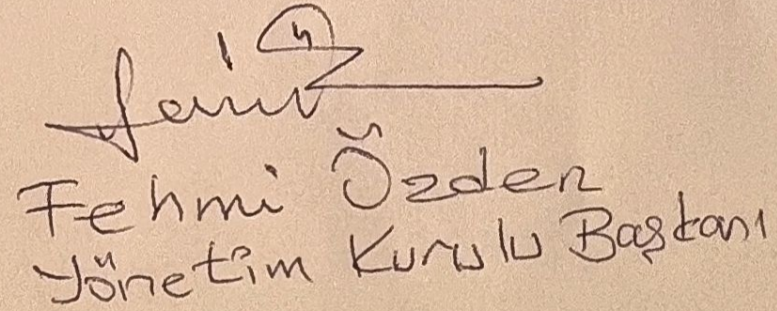 Fehmi Özden
Yönetim Kurulu Başkanı